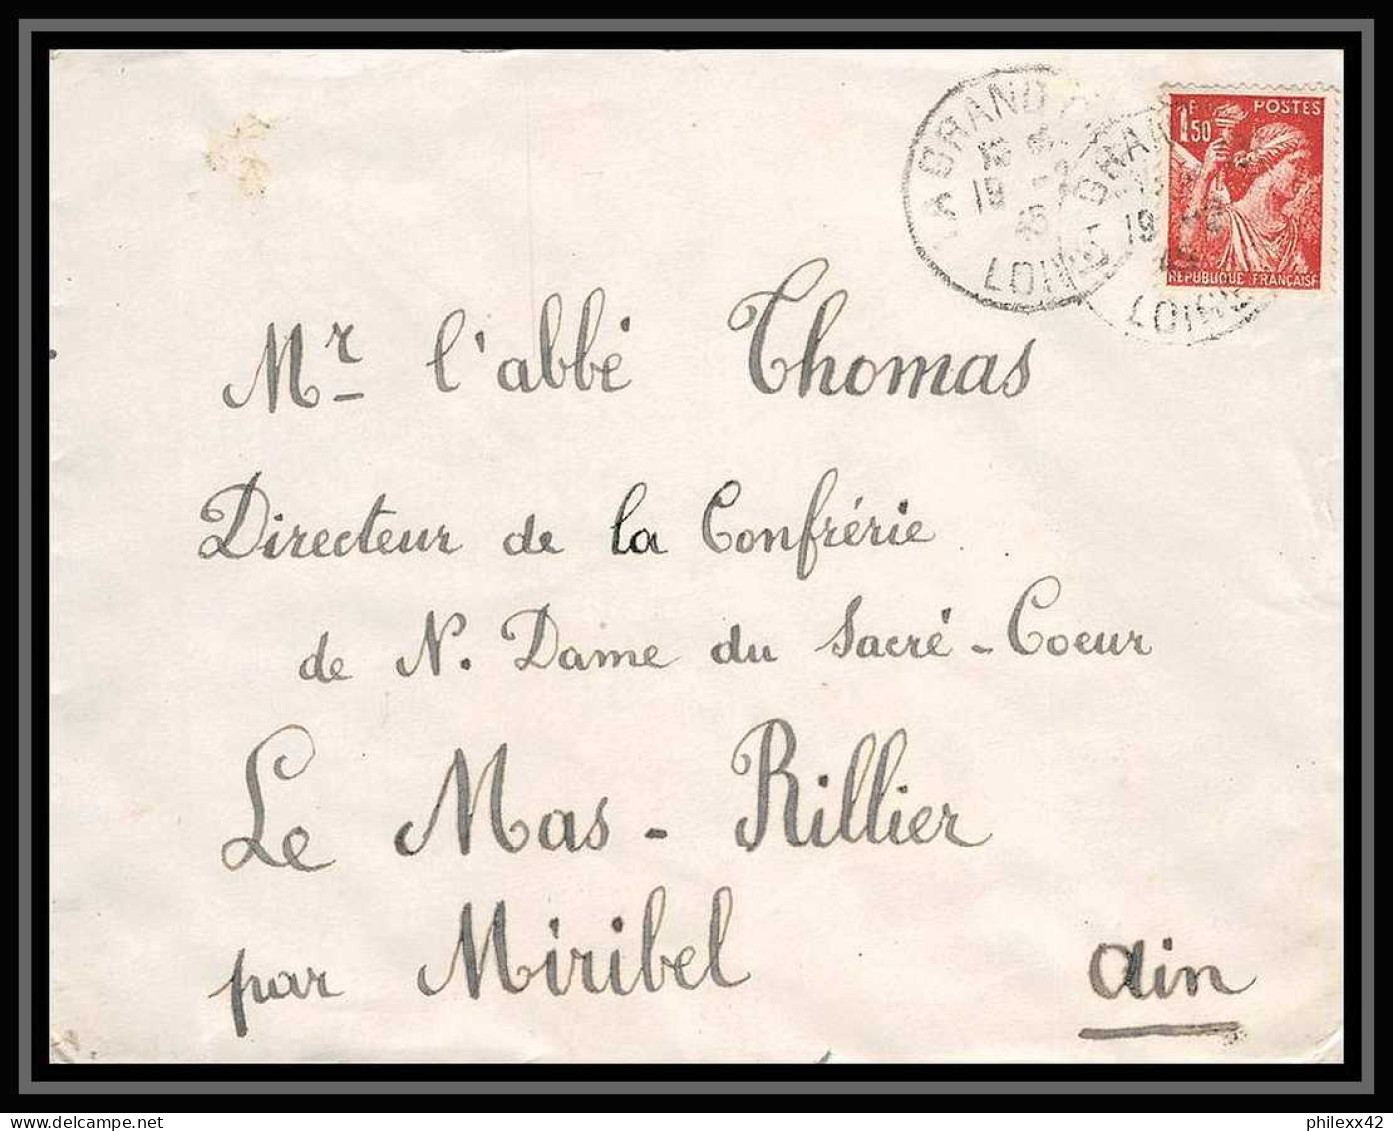 LA GRAND
LOIRE
19
LOIRE
1F50 POSTES
REPUBLIQUE FRANÇAISE
Mr l'abbé Thomas
Directeur de la Confrérie
de N. Dame du Sacré-Coeur
Le Mas-Rillier
par Miribel Ain
philexx42